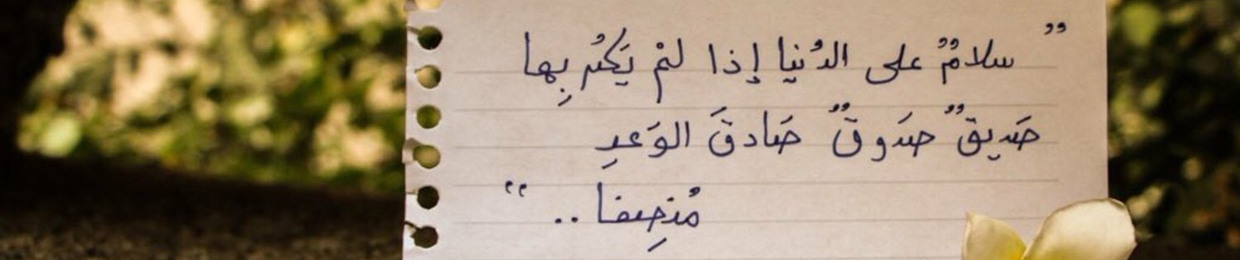 " سلامٌ على الدُنيا إذا لمْ يَكُن بِها
صَديقٌ صَدوقٌ صَادقَ الوَعدِ
مُنصِفا .. "